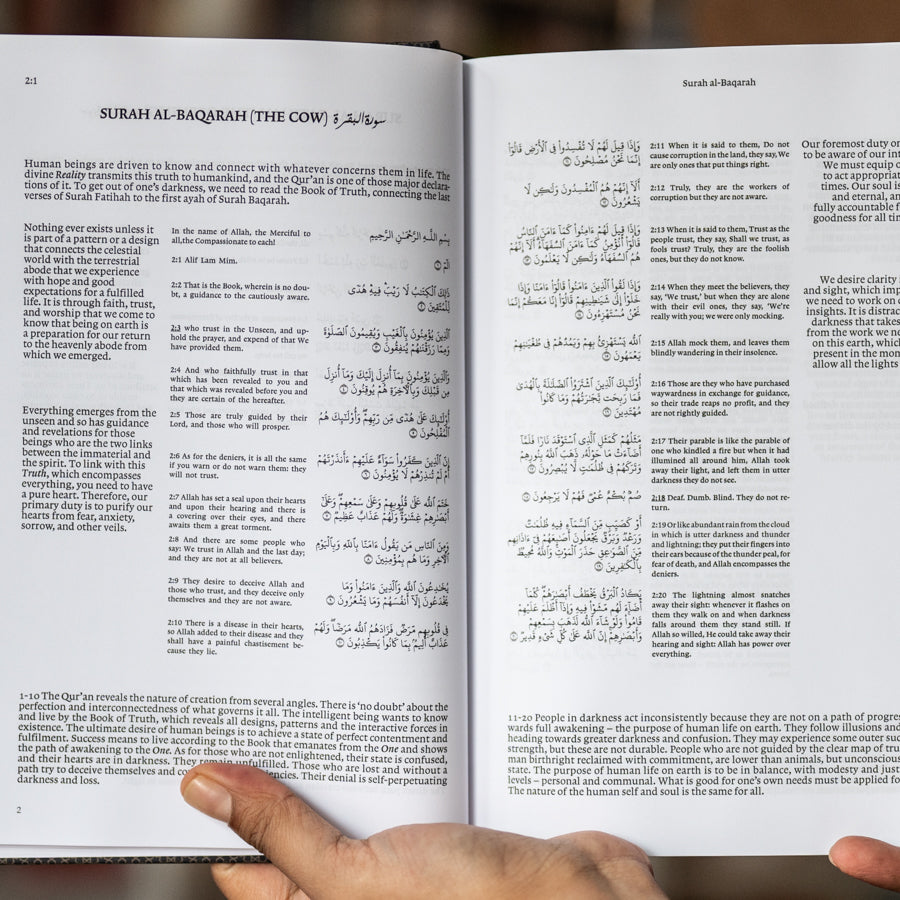 2:1
SURAH AL-BAQARAH (THE COW) سورة البقرة
Human beings are driven to know and connect with whatever concerns them in life. The
divine Reality transmits this truth to humankind, and the Qur'an is one of those major declara-
tions of it. To get out of one's darkness, we need to read the Book of Truth, connecting the last
verses of Surah Fatihah to the first ayah of Surah Baqarah.
Nothing ever exists unless it
is part of a pattern or a design
that connects the celestial
world with the terrestrial
abode that we experience
with hope and good
expectations for a fulfilled
life. It is through faith, trust,
and worship that we come to
know that being on earth is
a preparation for our return
to the heavenly abode from
which we emerged.
Everything emerges from the
unseen and so has guidance
and revelations for those
beings who are the two links
between the immaterial and
the spirit. To link with this
Truth, which encompasses
everything, you need to have
a pure heart. Therefore, our
primary duty is to purify our
hearts from fear, anxiety,
sorrow, and other veils.
In the name of Allah, the Merciful to
all,the Compassionate to each!
2:1 Alif Lam Mim.
2:2 That is the Book, wherein is no dou-
bt, a guidance to the cautiously aware.
2:3 who trust in the Unseen, and up-
hold the prayer, and expend of that We
have provided them.
2:4 And who faithfully trust in that
which has been revealed to you and
that which was revealed before you and
they are certain of the hereafter.
2:5 Those are truly guided by their
Lord, and those who will prosper.
2:6 As for the deniers, it is all the same
if you warn or do not warn them: they
will not trust.
2:7 Allah has set a seal upon their hearts
and upon their hearing and there is
a covering over their eyes, and there
awaits them a great torment.
2:8 And there are some people who
say: We trust in Allah and the Last day;
and they are not at all believers.
2:9 They desire to deceive Allah and
those who trust, and they deceive only
themselves and they are not aware.
2:10 There is a disease in their hearts,
so Allah added to their disease and they
shall have a painful chastisement be-
cause they lie.
بِسْمِ اللَّهِ الرَّحْمَٰنِ الرَّحِيمِ
الٓمٓ ١
ذَٰلِكَ ٱلْكِتَٰبُ لَا رَيْبَ فِيهِ هُدًى
لِّلْمُتَّقِينَ ٢
ٱلَّذِينَ يُؤْمِنُونَ بِٱلْغَيْبِ وَيُقِيمُونَ ٱلصَّلَوٰةَ
وَمِمَّا رَزَقْنَٰهُمْ يُنفِقُونَ ٣
وَٱلَّذِينَ يُؤْمِنُونَ بِمَآ أُنزِلَ إِلَيْكَ وَمَآ أُنزِلَ
مِن قَبْلِكَ وَبِٱلْءَاخِرَةِ هُمْ يُوقِنُونَ ٤
أُو۟لَٰٓئِكَ عَلَىٰ هُدًى مِّن رَّبِّهِمْ وَأُو۟لَٰٓئِكَ هُمُ
ٱلْمُفْلِحُونَ ٥
إِنَّ ٱلَّذِينَ كَفَرُوا۟ سَوَآءٌ عَلَيْهِمْ ءَأَنذَرْتَهُمْ
أَمْ لَمْ تُنذِرْهُمْ لَا يُؤْمِنُونَ ٦
خَتَمَ ٱللَّهُ عَلَىٰ قُلُوبِهِمْ وَعَلَىٰ سَمْعِهِمْ وَعَلَىٰٓ
أَبْصَٰرِهِمْ غِشَٰوَةٌ وَلَهُمْ عَذَابٌ عَظِيمٌ ٧
وَمِنَ ٱلنَّاسِ مَن يَقُولُ ءَامَنَّا بِٱللَّهِ وَبِٱلْيَوْمِ
ٱلْءَاخِرِ وَمَا هُم بِمُؤْمِنِينَ ٨
يُخَٰدِعُونَ ٱللَّهَ وَٱلَّذِينَ ءَامَنُوا۟ وَمَا
يَخْدَعُونَ إِلَّآ أَنفُسَهُمْ وَمَا يَشْعُرُونَ ٩
فِى قُلُوبِهِم مَّرَضٌ فَزَادَهُمُ ٱللَّهُ مَرَضًا وَلَهُمْ
عَذَابٌ أَلِيمٌۢ بِمَا كَانُوا۟ يَكْذِبُونَ ١٠
1-10 The Qur'an reveals the nature of creation from several angles. There is 'no doubt' about the
perfection and interconnectedness of what governs it all. The intelligent being wants to know
and live by the Book of Truth, which reveals all designs, patterns and the interactive forces in
existence. The ultimate desire of human beings is to achieve a state of perfect contentment and
fulfilment. Success means to live according to the Book that emanates from the One and shows
the path of awakening to the One. As for those who are not enlightened, their state is confused,
and their hearts are in darkness. They remain unfulfilled. Those who are lost and without a
path try to deceive themselves and Their denial is self-perpetuating
darkness and loss.
2
Surah al-Baqarah
وَإِذَا قِيلَ لَهُمْ لَا تُفْسِدُوا۟ فِى ٱلْأَرْضِ قَالُوٓا۟
إِنَّمَا نَحْنُ مُصْلِحُونَ ١١
أَلَآ إِنَّهُمْ هُمُ ٱلْمُفْسِدُونَ وَلَٰكِن لَّا
يَشْعُرُونَ ١٢
وَإِذَا قِيلَ لَهُمْ ءَامِنُوا۟ كَمَآ ءَامَنَ ٱلنَّاسُ
قَالُوٓا۟ أَنُؤْمِنُ كَمَآ ءَامَنَ ٱلسُّفَهَآءُ أَلَآ إِنَّهُمْ
هُمُ ٱلسُّفَهَآءُ وَلَٰكِن لَّا يَعْلَمُونَ ١٣
وَإِذَا لَقُوا۟ ٱلَّذِينَ ءَامَنُوا۟ قَالُوٓا۟ ءَامَنَّا وَإِذَا
خَلَوْا۟ إِلَىٰ شَيَٰطِينِهِمْ قَالُوٓا۟ إِنَّا مَعَكُمْ إِنَّمَا
نَحْنُ مُسْتَهْزِءُونَ ١٤
ٱللَّهُ يَسْتَهْزِئُ بِهِمْ وَيَمُدُّهُمْ فِى طُغْيَٰنِهِمْ
يَعْمَهُونَ ١٥
أُو۟لَٰٓئِكَ ٱلَّذِينَ ٱشْتَرَوُا۟ ٱلضَّلَٰلَةَ بِٱلْهُدَىٰ
فَمَا رَبِحَت تِّجَٰرَتُهُمْ وَمَا كَانُوا۟
مُهْتَدِينَ ١٦
مَثَلُهُمْ كَمَثَلِ ٱلَّذِى ٱسْتَوْقَدَ نَارًا فَلَمَّآ
أَضَآءَتْ مَا حَوْلَهُۥ ذَهَبَ ٱللَّهُ بِنُورِهِمْ
وَتَرَكَهُمْ فِى ظُلُمَٰتٍ لَّا يُبْصِرُونَ ١٧
صُمٌّۢ بُكْمٌ عُمْىٌ فَهُمْ لَا يَرْجِعُونَ ١٨
أَوْ كَصَيِّبٍ مِّنَ ٱلسَّمَآءِ فِيهِ ظُلُمَٰتٌ
وَرَعْدٌ وَبَرْقٌ يَجْعَلُونَ أَصَٰبِعَهُمْ فِىٓ ءَاذَانِهِم
مِّنَ ٱلصَّوَٰعِقِ حَذَرَ ٱلْمَوْتِ وَٱللَّهُ مُحِيطٌۢ
بِٱلْكَٰفِرِينَ ١٩
يَكَادُ ٱلْبَرْقُ يَخْطَفُ أَبْصَٰرَهُمْ كُلَّمَآ
أَضَآءَ لَهُم مَّشَوْا۟ فِيهِ وَإِذَآ أَظْلَمَ عَلَيْهِمْ
قَامُوا۟ وَلَوْ شَآءَ ٱللَّهُ لَذَهَبَ بِسَمْعِهِمْ
وَأَبْصَٰرِهِمْ إِنَّ ٱللَّهَ عَلَىٰ كُلِّ شَىْءٍ قَدِيرٌ ٢٠
2:11 When it is said to them, Do not
cause corruption in the land, they say, We
are only ones that put things right.
2:12 Truly, they are the workers of
corruption but they are not aware.
2:13 When it is said to them, Trust as the
people trust, they say, Shall we trust, as
fools trust? Truly, they are the foolish
ones, but they do not know.
2:14 When they meet the believers, they
say, 'We trust,' but when they are alone
with their evil ones, they say, 'We're
really with you; we were only mocking.
2:15 Allah mock them, and leaves them
blindly wandering in their insolence.
2:16 Those are they who have purchased
waywardness in exchange for guidance,
so their trade reaps no profit, and they
are not rightly guided.
2:17 Their parable is like the parable of
one who kindled a fire but when it had
illumined all around him, Allah took
away their light, and left them in utter
darkness they do not see.
2:18 Deaf. Dumb. Blind. They do not re-
turn.
2:19 Or like abundant rain from the cloud
in which is utter darkness and thunder
and lightning; they put their fingers into
their ears because of the thunder peal, for
fear of death, and Allah encompasses the
deniers.
2:20 The lightning almost snatches
away their sight: whenever it flashes on
them they walk on and when darkness
falls around them they stand still. If
Allah so willed, He could take away their
hearing and sight: Allah has power over
everything.
Our foremost duty
to be aware of our
We must equip
to act
times. Our soul
and eternal,
fully accountable
goodness for all
We desire clarity
and sight, which
we need to work on
insights. It is
darkness that takes
from the work we
on this earth, which
present in the
allow all the lights
11-20 People in darkness act inconsistently because they are not on a path of
wards full awakening – the purpose of human life on earth. They follow illusions
heading towards greater darkness and confusion. They may experience some outer
strength, but these are not durable. People who are not guided by the clear map of
man birthright reclaimed with commitment, are lower than animals, but
state. The purpose of human life on earth is to be in balance, with modesty and
levels – personal and communal. What is good for one's own needs must be applied
The nature of the human self and soul is the same for all.